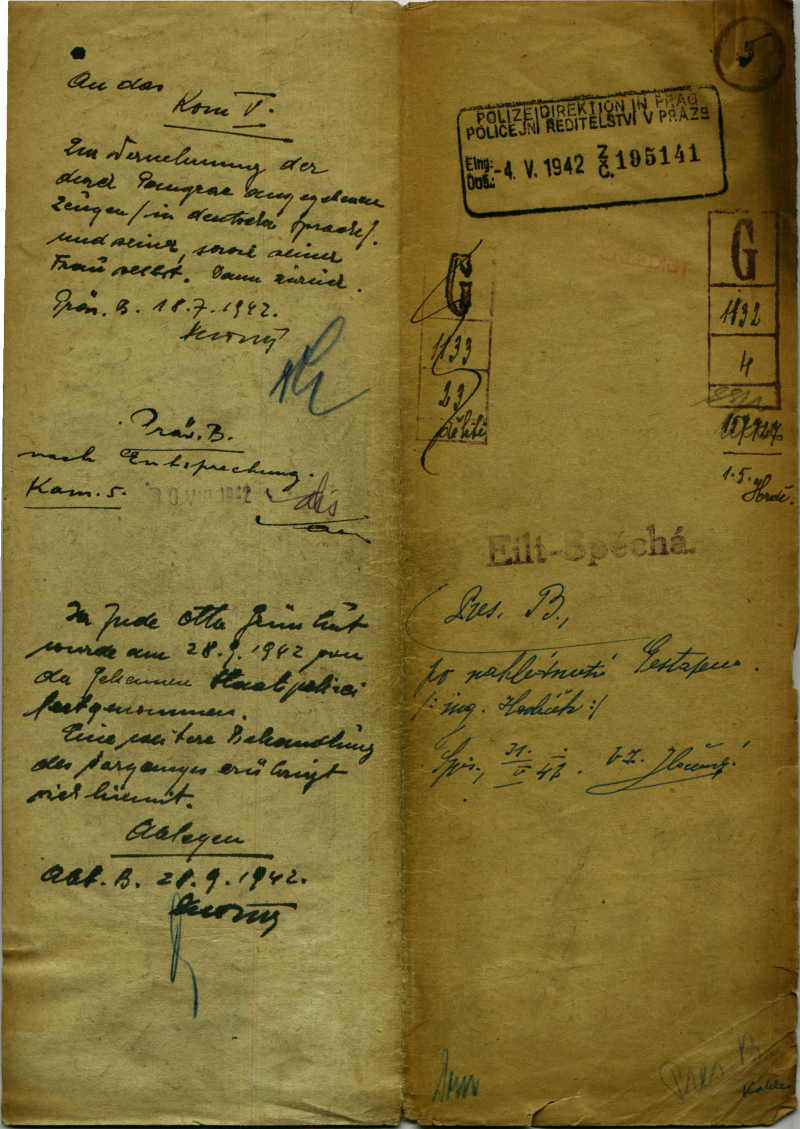 An das
Kom V.
Zur Vernehmung der
durch angegebenen
Zeugen / in deutscher Sprache /.
und seiner, sowie seiner
Frau selbst. Dann zurück.
Präs. B. 18.7.1942.
Präs. B.
nach Entsprechung.
Kom. 5.
1942
Der Jude Otto Grünhut
wurde am 28.9.1942 von
der Geheimen Staatspolizei
festgenommen.
Eine weitere Behandlung
des Vorganges erübrigt
sich hiermit.
Ablegen
Abt. B. 28.9.1942.
5
POLIZEIDIREKTION IN PRAG
POLICEJNÍ ŘEDITELSTVÍ V PRAZE
Eing.:
Doš.: -4. V. 1942 Z. Č. 195141
G
1133
23
G
1132
4
1.5.
Eilt-Spěchá.
Pres. B.,
po nahlédnutí Gestapem.
/: ing. :/
Pres. B